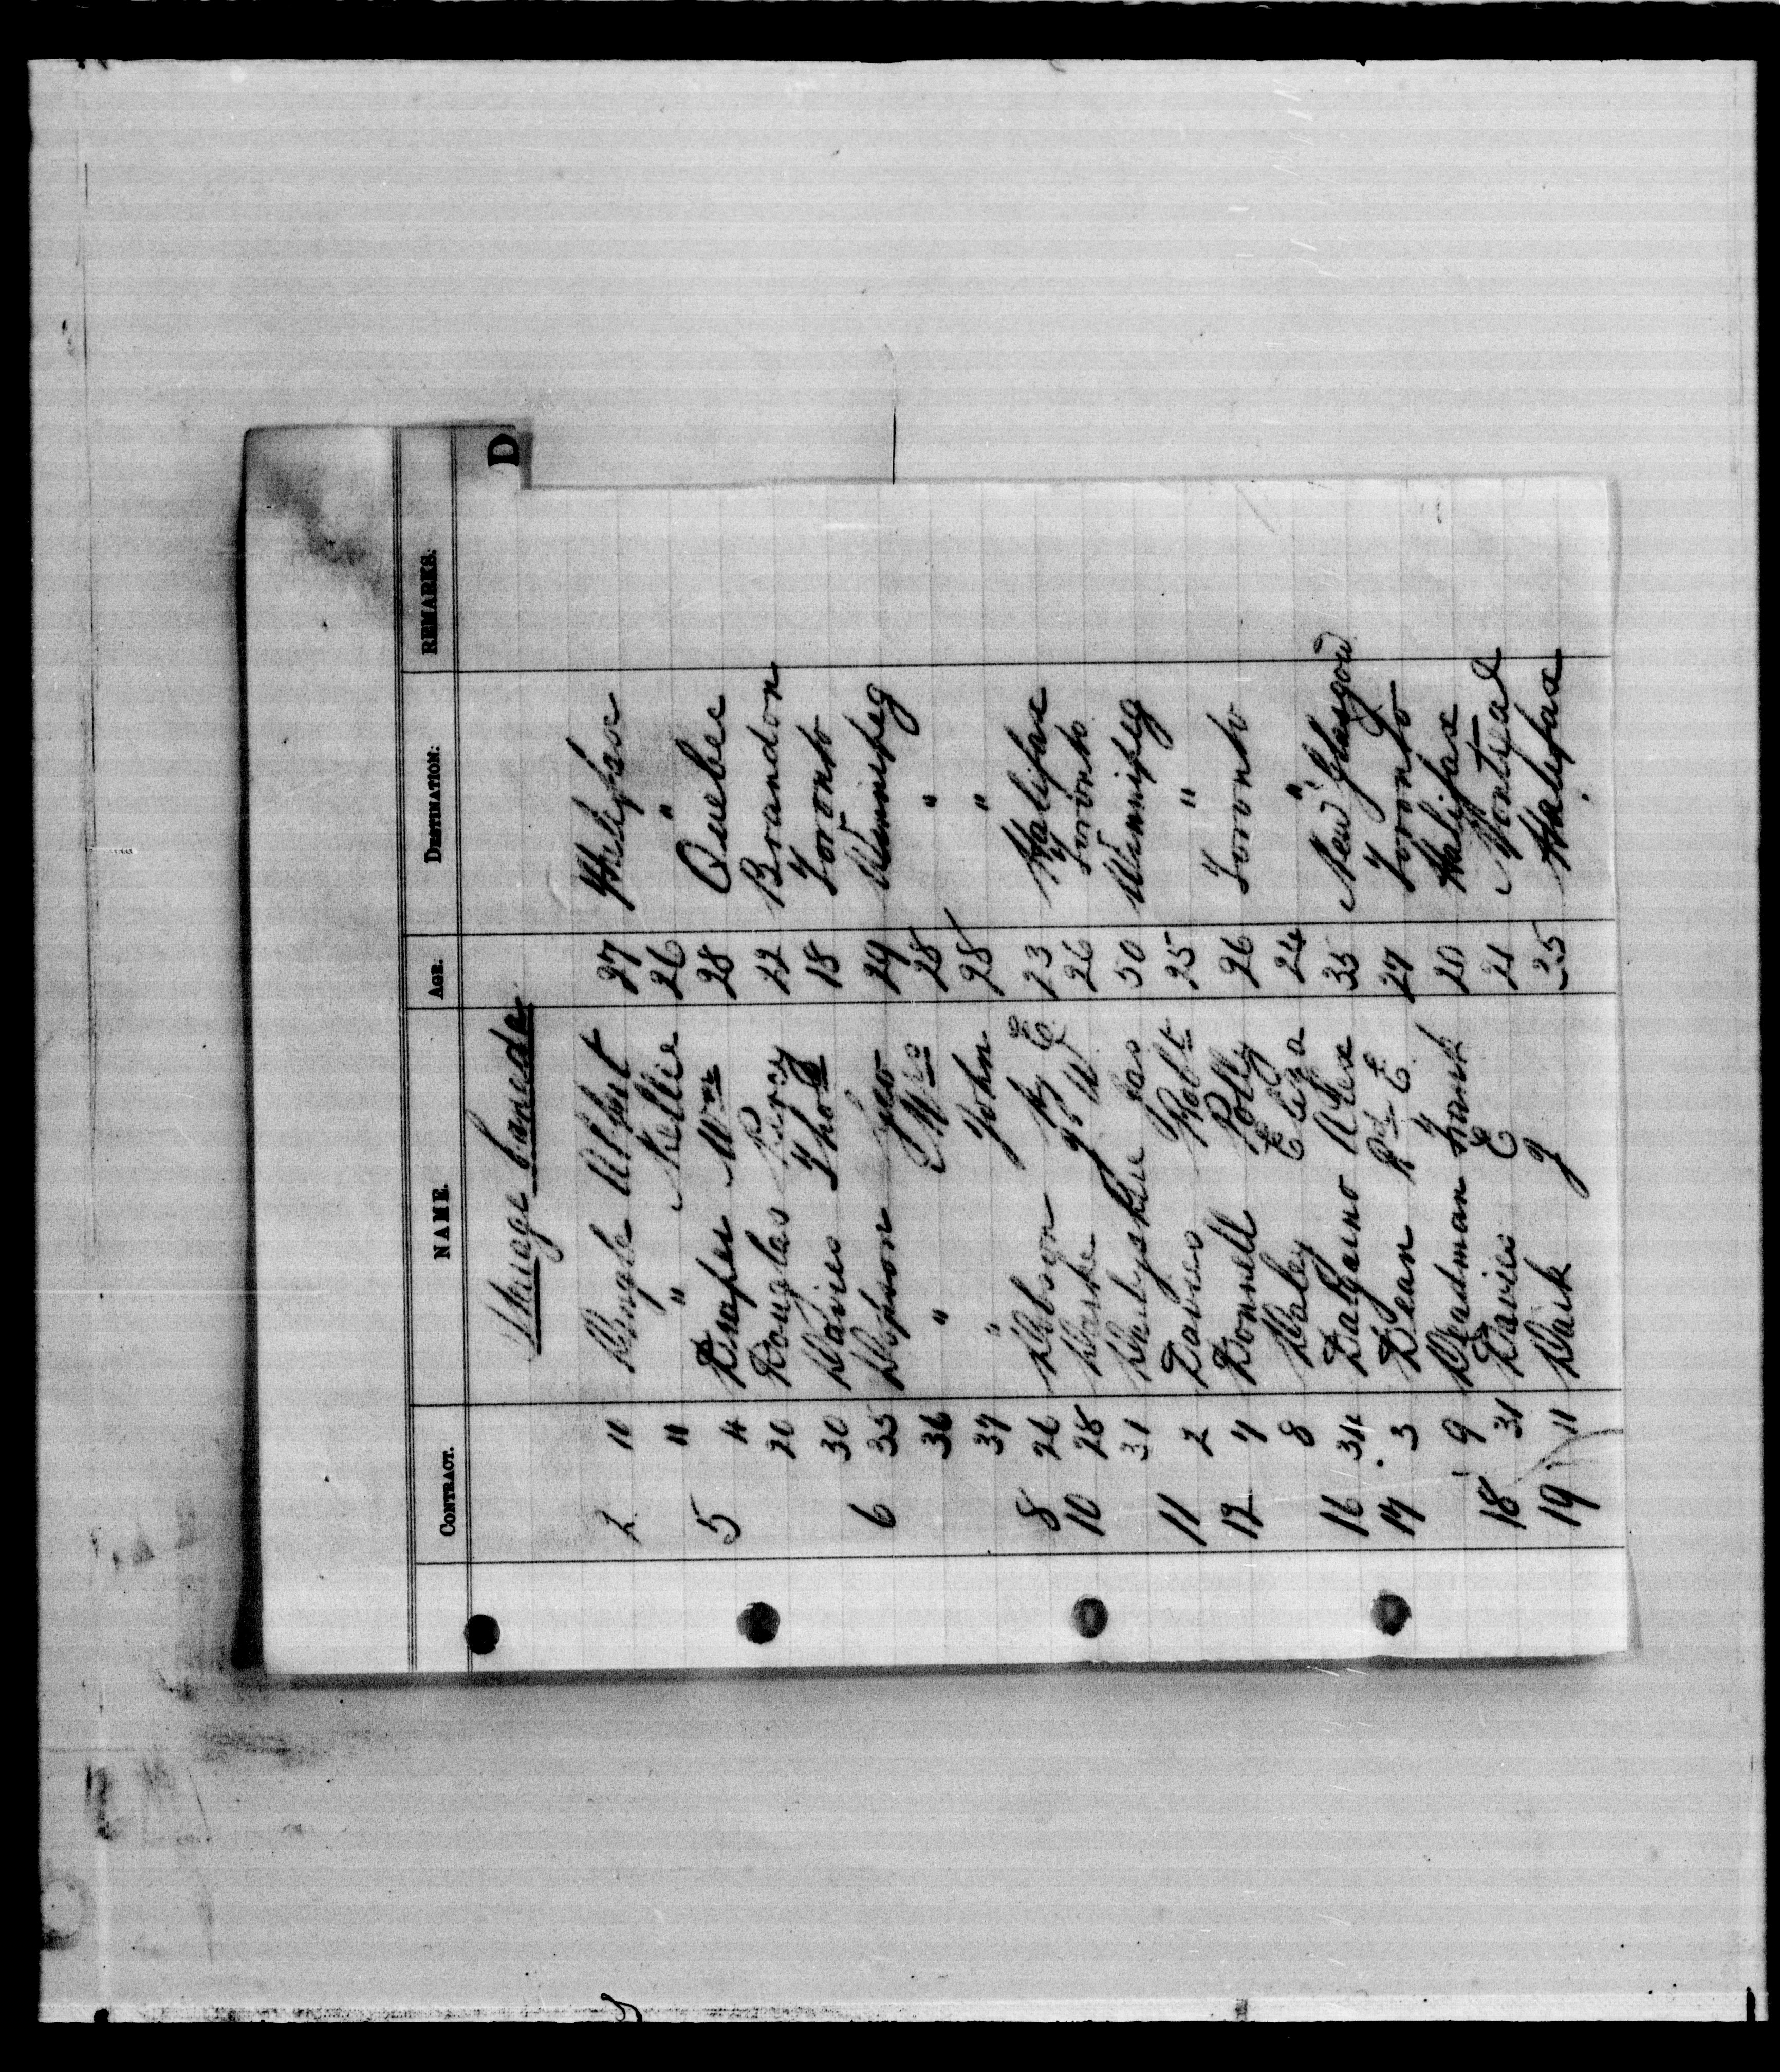 D
CONTRACT. NAME. AGE. DESTINATION. REMARKS.
Steerage Canada
2 11 Dingle Albert 27 Halifax
11 " Nellie 26 "
5 4 Draper Wm 28 Quebec
20 Douglas Percy 22 Brandon
30 Davies Thos 18 Toronto
6 35 Dopson Geo 29 Winnipeg
36 " Mrs 28 "
37 " John 28 "
8 26 Dobson Hy E 23 Halifax
10 28 G W 26 Toronto
31 Jas 50 Winnipeg
11 2 Davies Robt 25 "
12 4 Donnell Polly 26 Toronto
8 Daley Eliza 24 "
16 34 Dalgarno Alex 35 New Glasgow
17 3 Dean Rd E 27 Toronto
9 Deadman Frank 20 Halifax
18 31 Davies E 21 Montreal
19 11 Dark J 25 Halifax